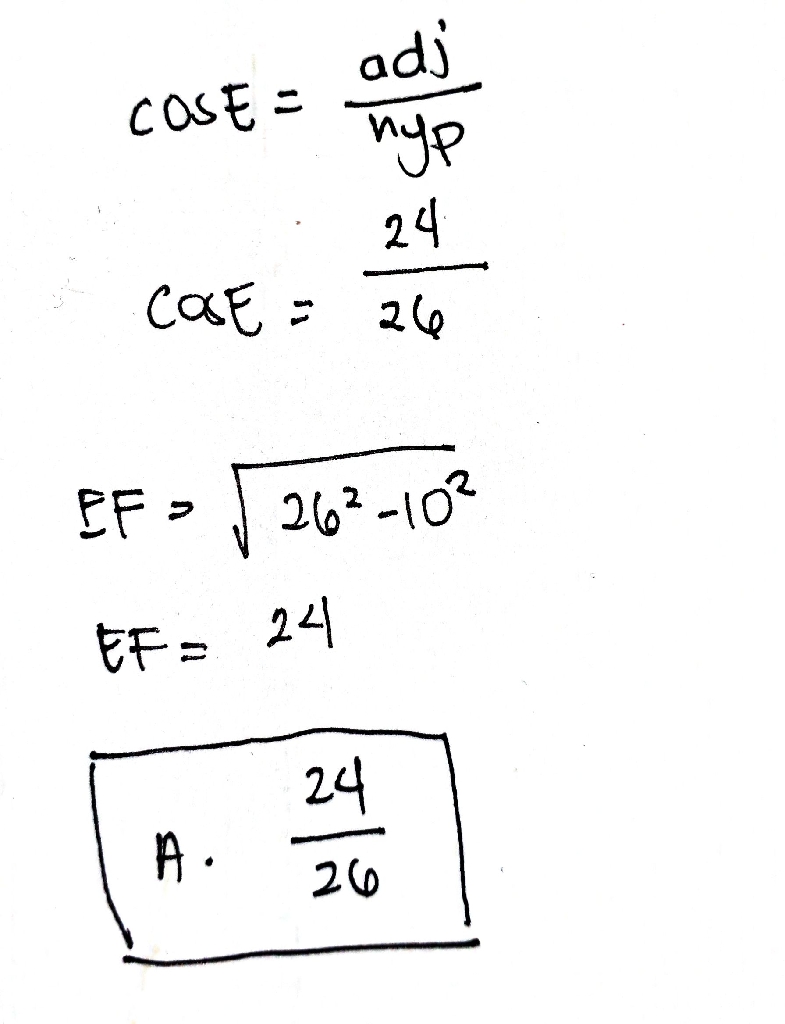 cos E = adj/hyp
cos E = 24/26
EF = √26² - 10²
EF = 24
A. 24/26